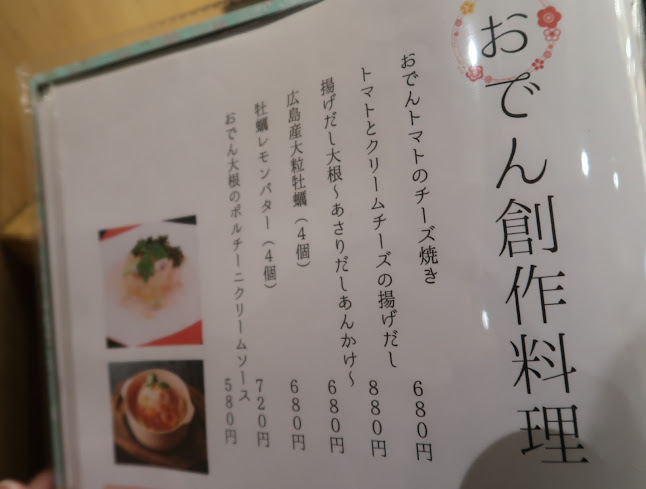 おでん創作料理
おでんトマトのチーズ焼き 680円
トマトとクリームチーズの揚げだし 880円
揚げだし大根〜あさりだしあんかけ〜 680円
広島産大粒牡蠣(4個) 680円
牡蠣レモンバター(4個) 720円
おでん大根のポルチーニクリームソース 580円